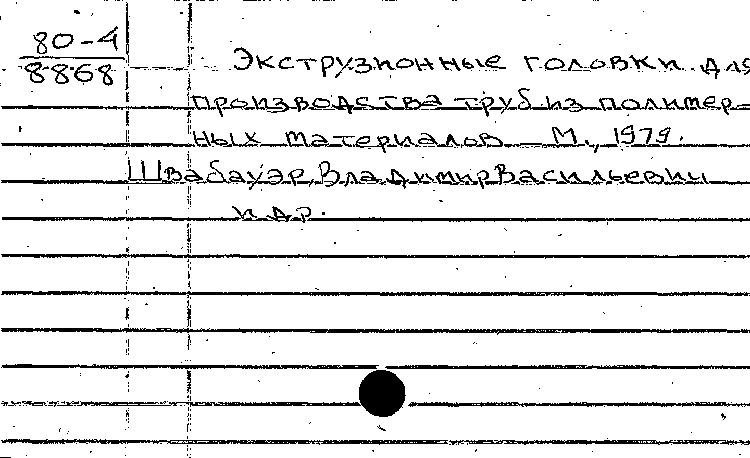 80-4
8868
Экструзионные головки для
производства труб из полимер-
ных материалов - М., 1979.
Швабауэр, Владимир Васильевич
и др.